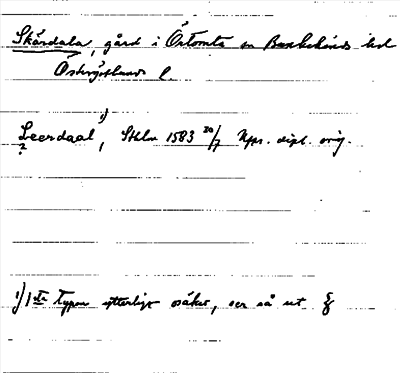 Skärdala, gård i Örtomta sn Bankekinds hd
Östergötlands l.
Leerdaal 1), Sthlm 1583 20/7 Upps. dipl. orig.
?
1) 1sta typen ytterligt osäker, ser så ut